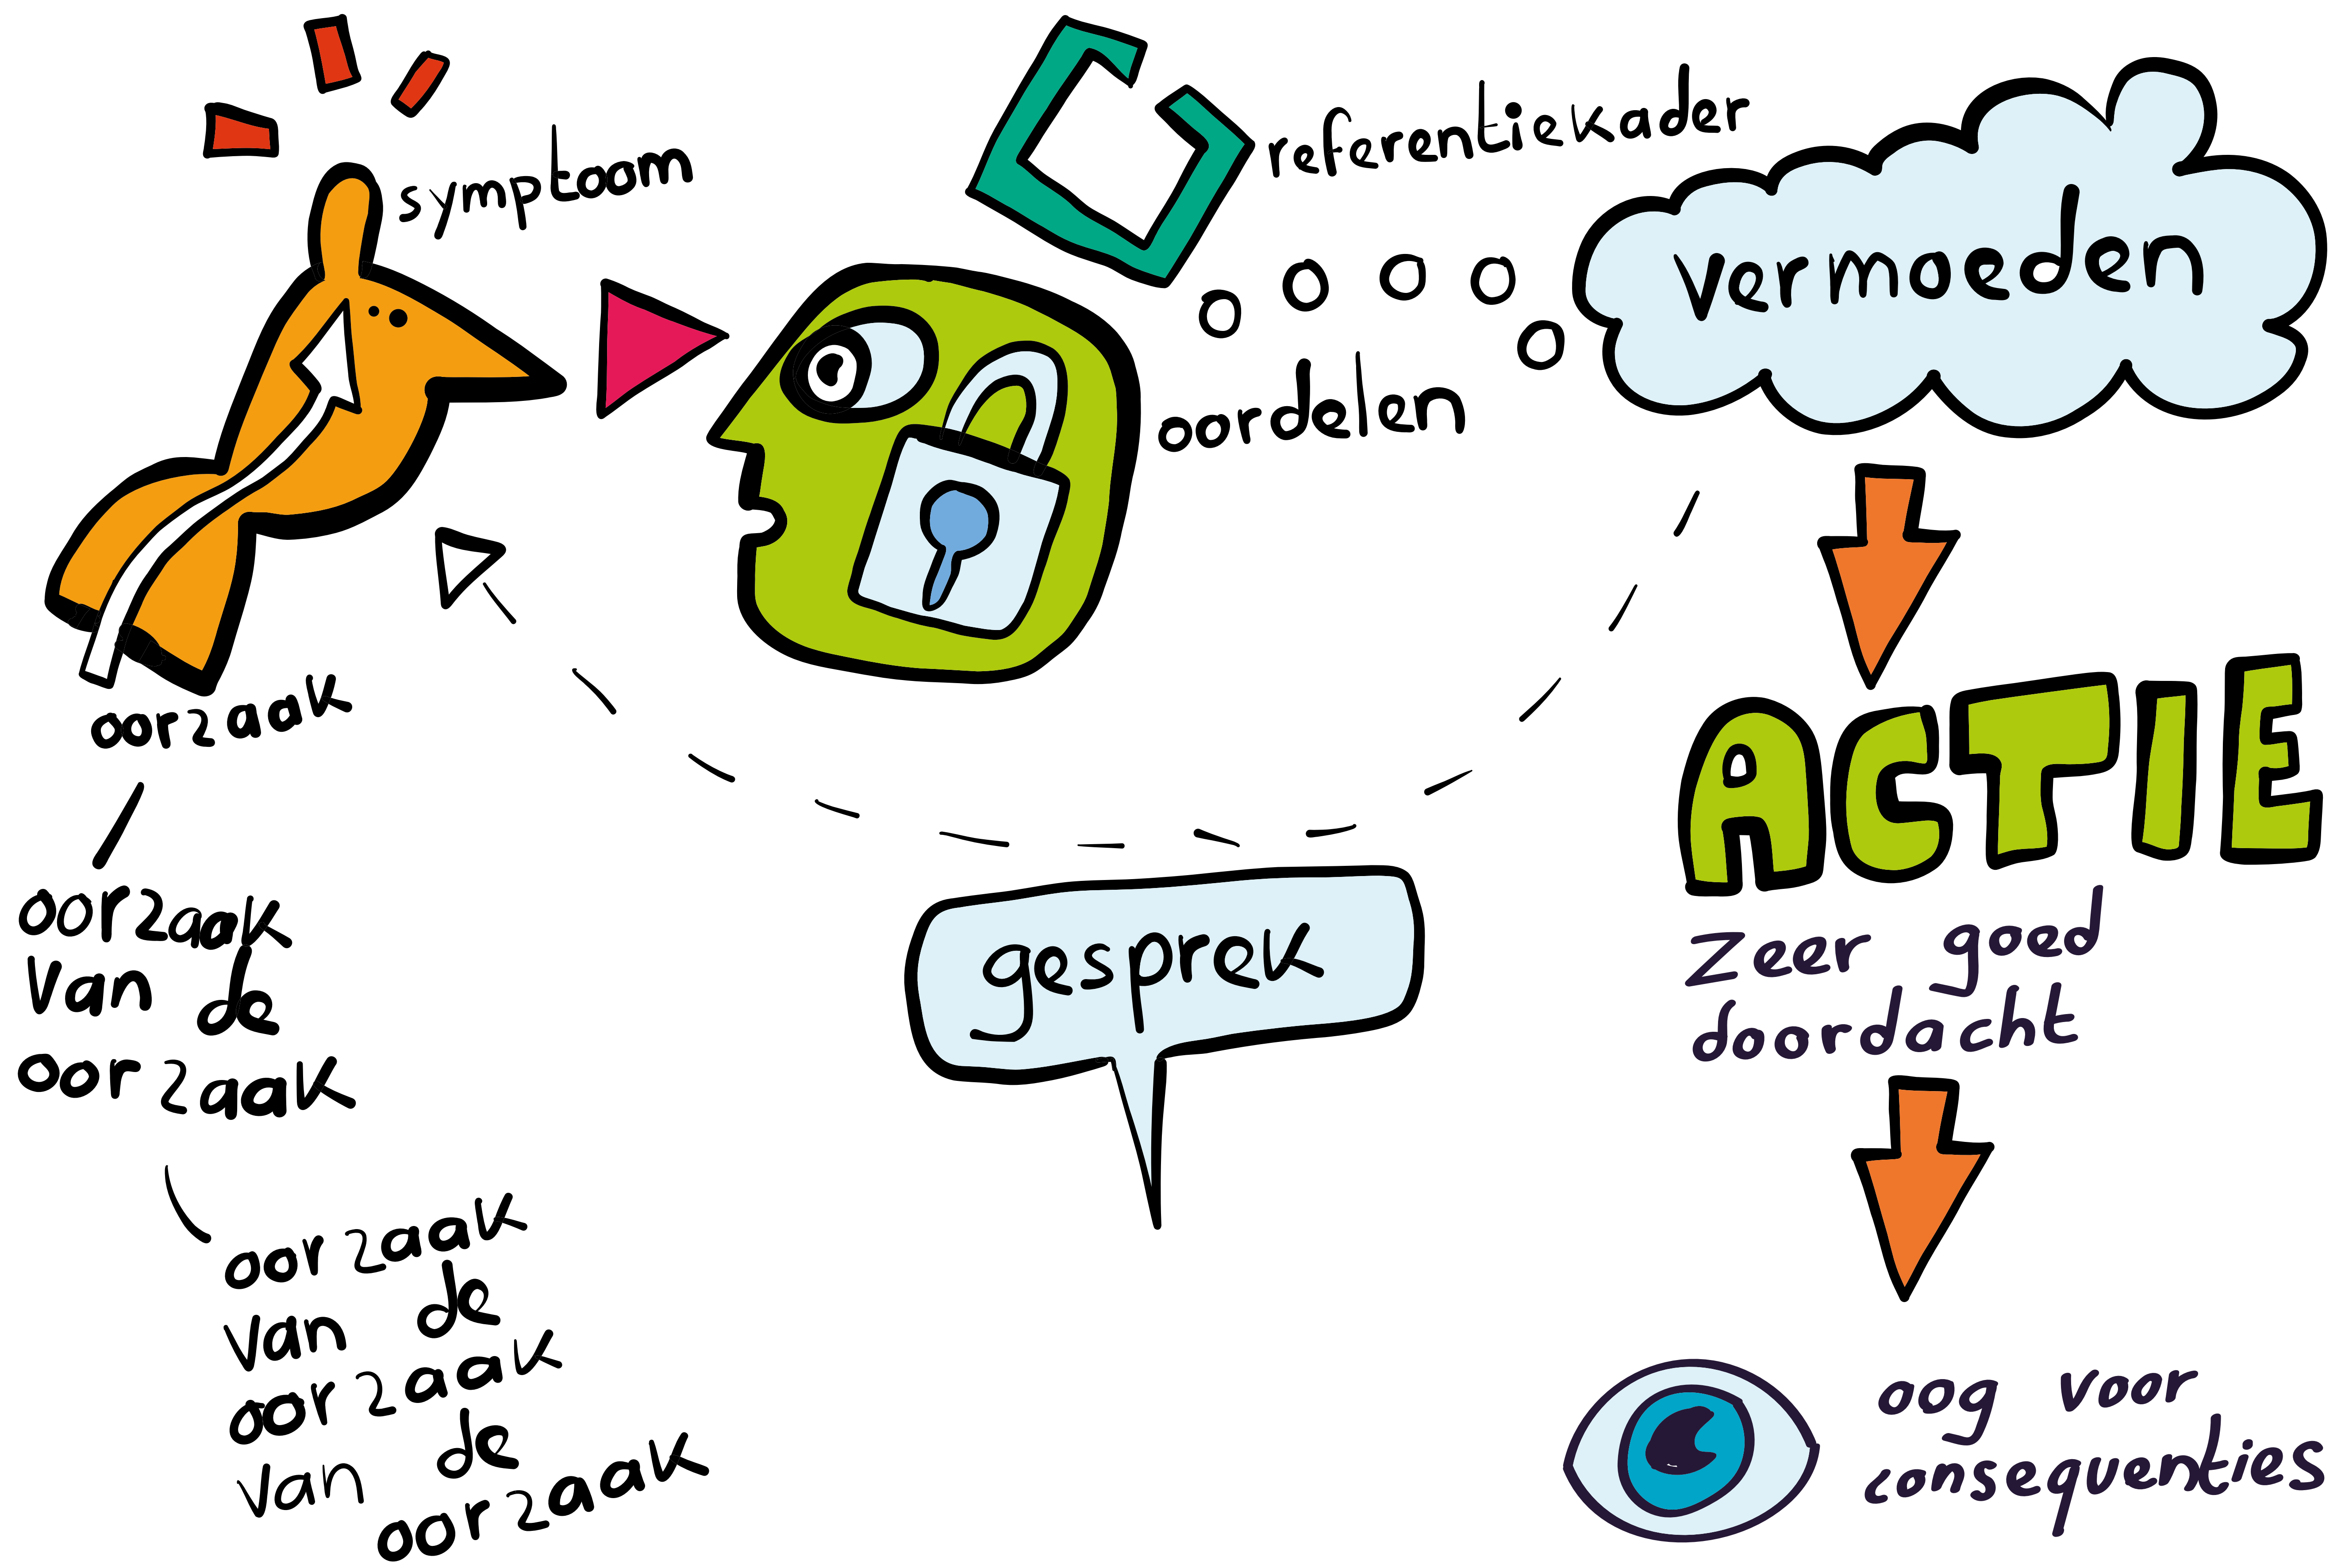 symptoom
referentiekader
vermoeden
oordelen
oorzaak
oorzaak
van de
oorzaak
oorzaak
van de
oorzaak
van de
oorzaak
gesprek
ACTIE
zeer goed
doordacht
oog voor
consequenties